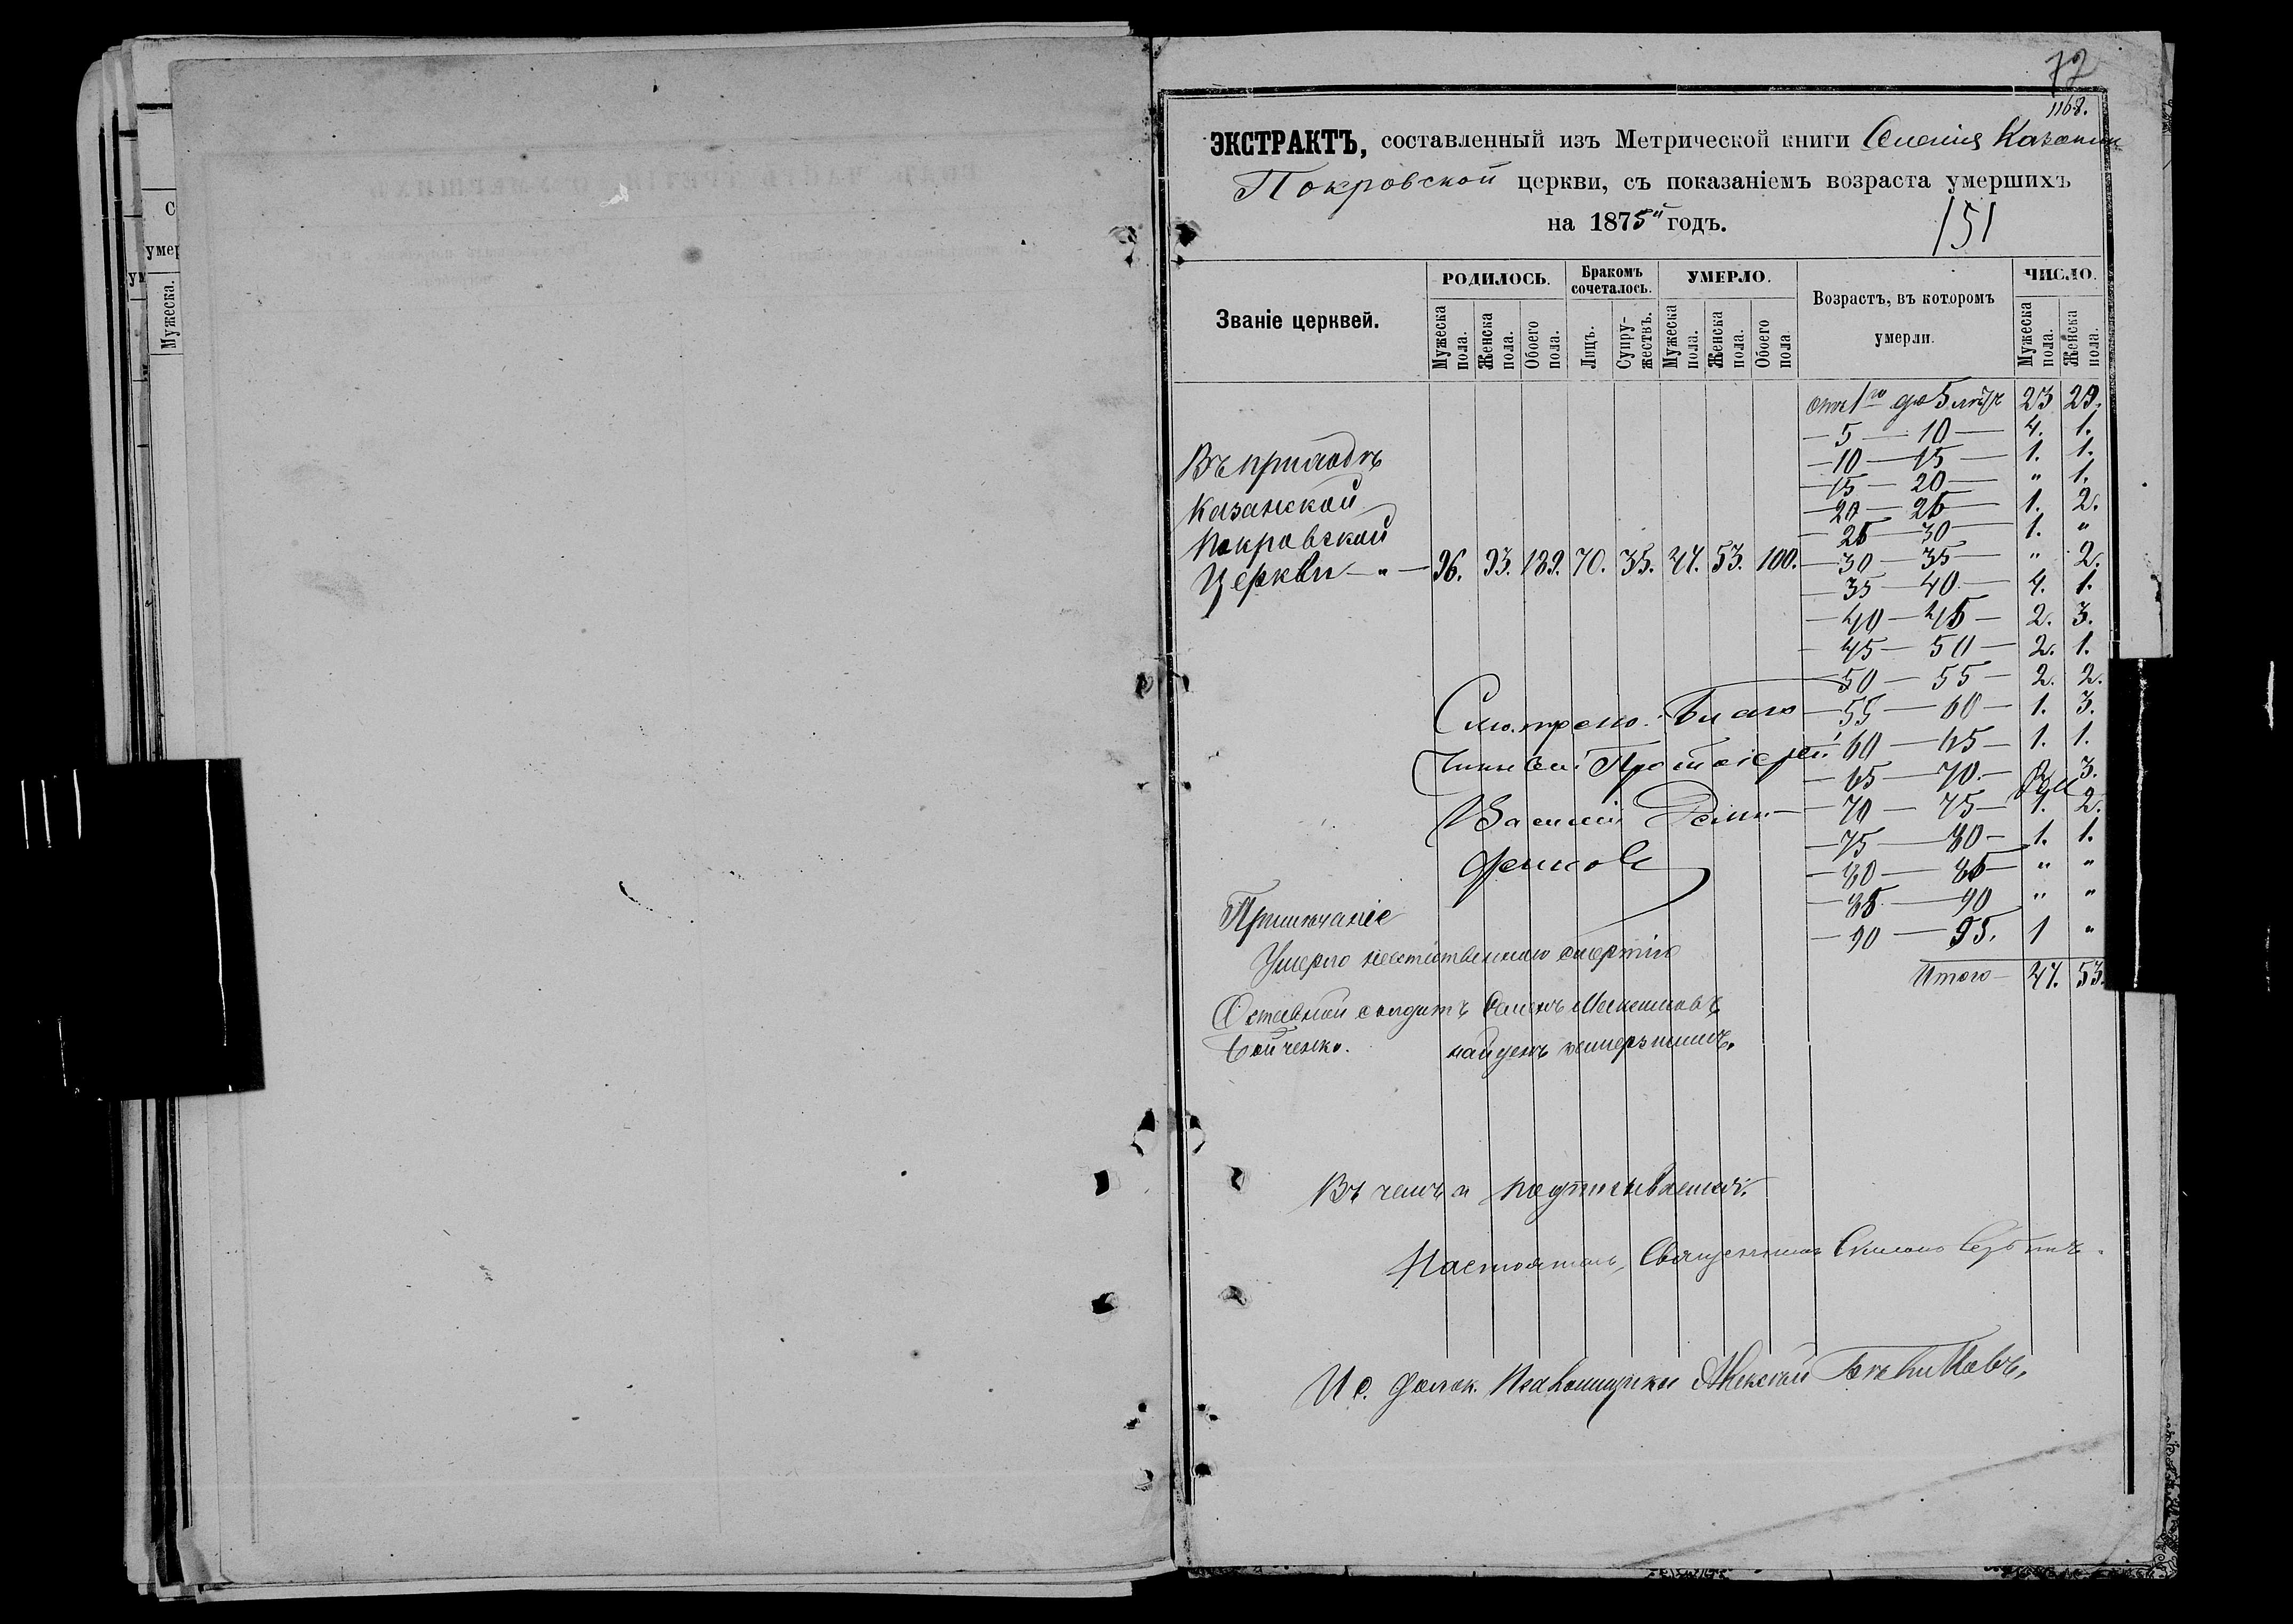 С
умер
ум
Мужеска.
72
1168.
ЭКСТРАКТЪ, составленный изъ Метрической книги Селенія Казанки
Покровской церкви, съ показаніемъ возраста умершихъ
на 1875й годъ.
151
Званіе церквей.
РОДИЛОСЬ.
Бракомъ сочеталось.
УМЕРЛО.
Возрастъ, въ которомъ умерли.
ЧИСЛО.
Мужеска пола.
Женска пола.
Обоего пола.
Лицъ.
Супру-жествъ.
Мужеска пола.
Женска пола.
Обоего пола
Мужеска пола.
Женска пола.
отъ 1го до 5 лѣтъ 23 29.
— 5 — 10 — 4. 1.
— 10 — 15 — 1. 1.
— 15 — 20 — " 1.
— 20 — 25 — 1. 2.
— 25 — 30 — 1. "
— 30 — 35 — " 2.
— 35 — 40 — 4. 1.
— 40 — 45 — 2. 3.
— 45 — 50 — 2. 1.
— 50 — 55 — 2. 2.
— 55 — 60 — 1. 3.
— 60 — 65 — 1. 1.
— 65 — 70. — 3.
— 70 — 75 — 1. 2.
— 75 — 80 — 1. 1.
— 80 — 85 — " "
— 85 — 90 " "
— 90 — 95. 1 "
Итого — 47. 53.
Въ приходѣ
Казанской
Покровской
Церкви — " — 96. 93. 189. 70. 35. 47. 53. 100.
Смотрено: Благо
чинный Протоіерей
Василій
Примѣчаніе
Умерло неестественною смертію
Отставной солдатъ Семенъ
Бойченко. найденъ замерзшимъ.
Въ чемъ и подписываемся:
Настоятель, Священникъ
И с. долж. Псаломщика Алексѣй